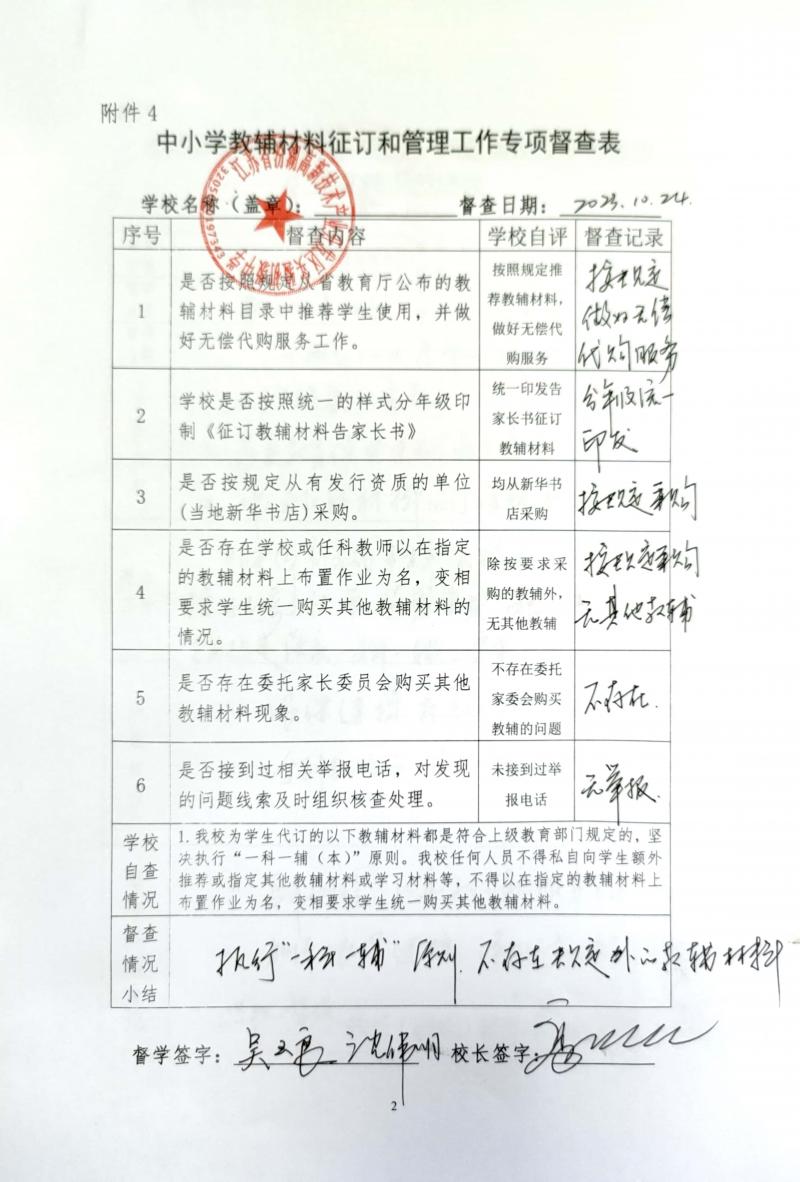 附件4
中小学教辅材料征订和管理工作专项督查表
学校名称(盖章): 督查日期: 2023.10.24.
序号 督查内容 学校自评 督查记录
1
是否按照规定从省教育厅公布的教
辅材料目录中推荐学生使用，并做
好无偿代购服务工作。
按照规定推
荐教辅材料，
做好无偿代
购服务
按规定
做好无偿
代购服务
2
学校是否按照统一的样式分年级印
制《征订教辅材料告家长书》
统一印发告
家长书征订
教辅材料
分年级统一
印发
3
是否按规定从有发行资质的单位
(当地新华书店)采购。
均从新华书
店采购
按规定采购
4
是否存在学校或任科教师以在指定
的教辅材料上布置作业为名，变相
要求学生统一购买其他教辅材料的
情况。
除按要求采
购的教辅外，
无其他教辅
按规定采购
无其他教辅
5
是否存在委托家长委员会购买其他
教辅材料现象。
不存在委托
家委会购买
教辅的问题
不存在.
6
是否接到过相关举报电话，对发现
的问题线索及时组织核查处理。
未接到过举
报电话
无举报.
学校
自查
情况
1.我校为学生代订的以下教辅材料都是符合上级教育部门规定的，坚
决执行“一科一辅（本）”原则。我校任何人员不得私自向学生额外
推荐或指定其他教辅材料或学习材料等，不得以在指定的教辅材料上
布置作业为名，变相要求学生统一购买其他教辅材料。
督查
情况
小结
执行“一科一辅”原则.不存在规定外的教辅材料
督学签字: 校长签字:
2